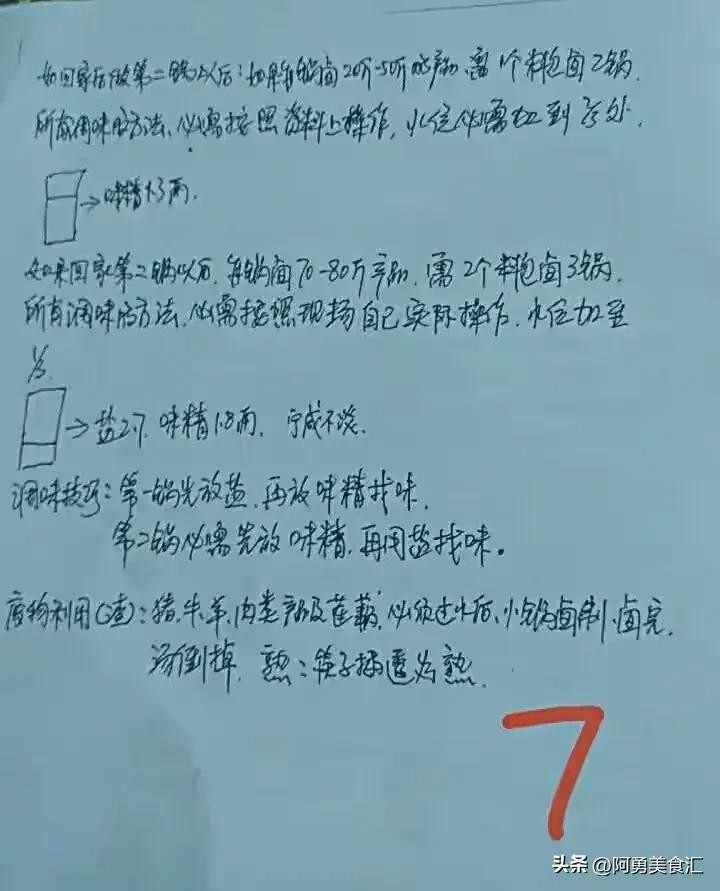 如回家后做第二锅以后：如果每锅卤20斤-50斤产品，需1个料包卤2锅.
所有调味的方法，必需按照资料上操作，水位必需加到 处.
→味精 3两.
如果回家第二锅以后，每锅卤70-80斤产品，需2个料包卤3锅.
所有调味的方法，必需按照现场自己实际操作，水位加至
⅓.
→盐2 ，味精1.8两，宁咸不淡.
调味技巧：第一锅先放盐，再放味精找味.
第二锅必需先放味精，再用盐找味。
废物利用(渣)：猪、牛、羊、肉类产品及莲藕，必须过水后，小锅卤制，卤完.
汤倒掉，熟：筷子插透为熟.
7
头条 @阿勇美食汇